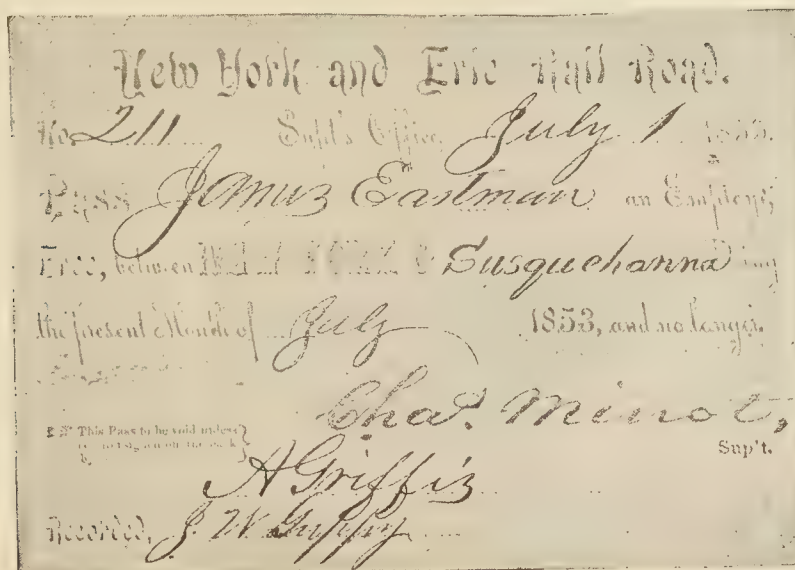 New York and Erie Rail Road.
No. 211 Supt's Office, July 1 1853.
Pass James Eastman an Employé,
Free, between NEW YORK & Susquehanna
the present Month of July 1853, and no longer.
Chas. Minot,
This Pass to be void unless
Sup't.
A Griffis
Recorded, J. W. Guppy